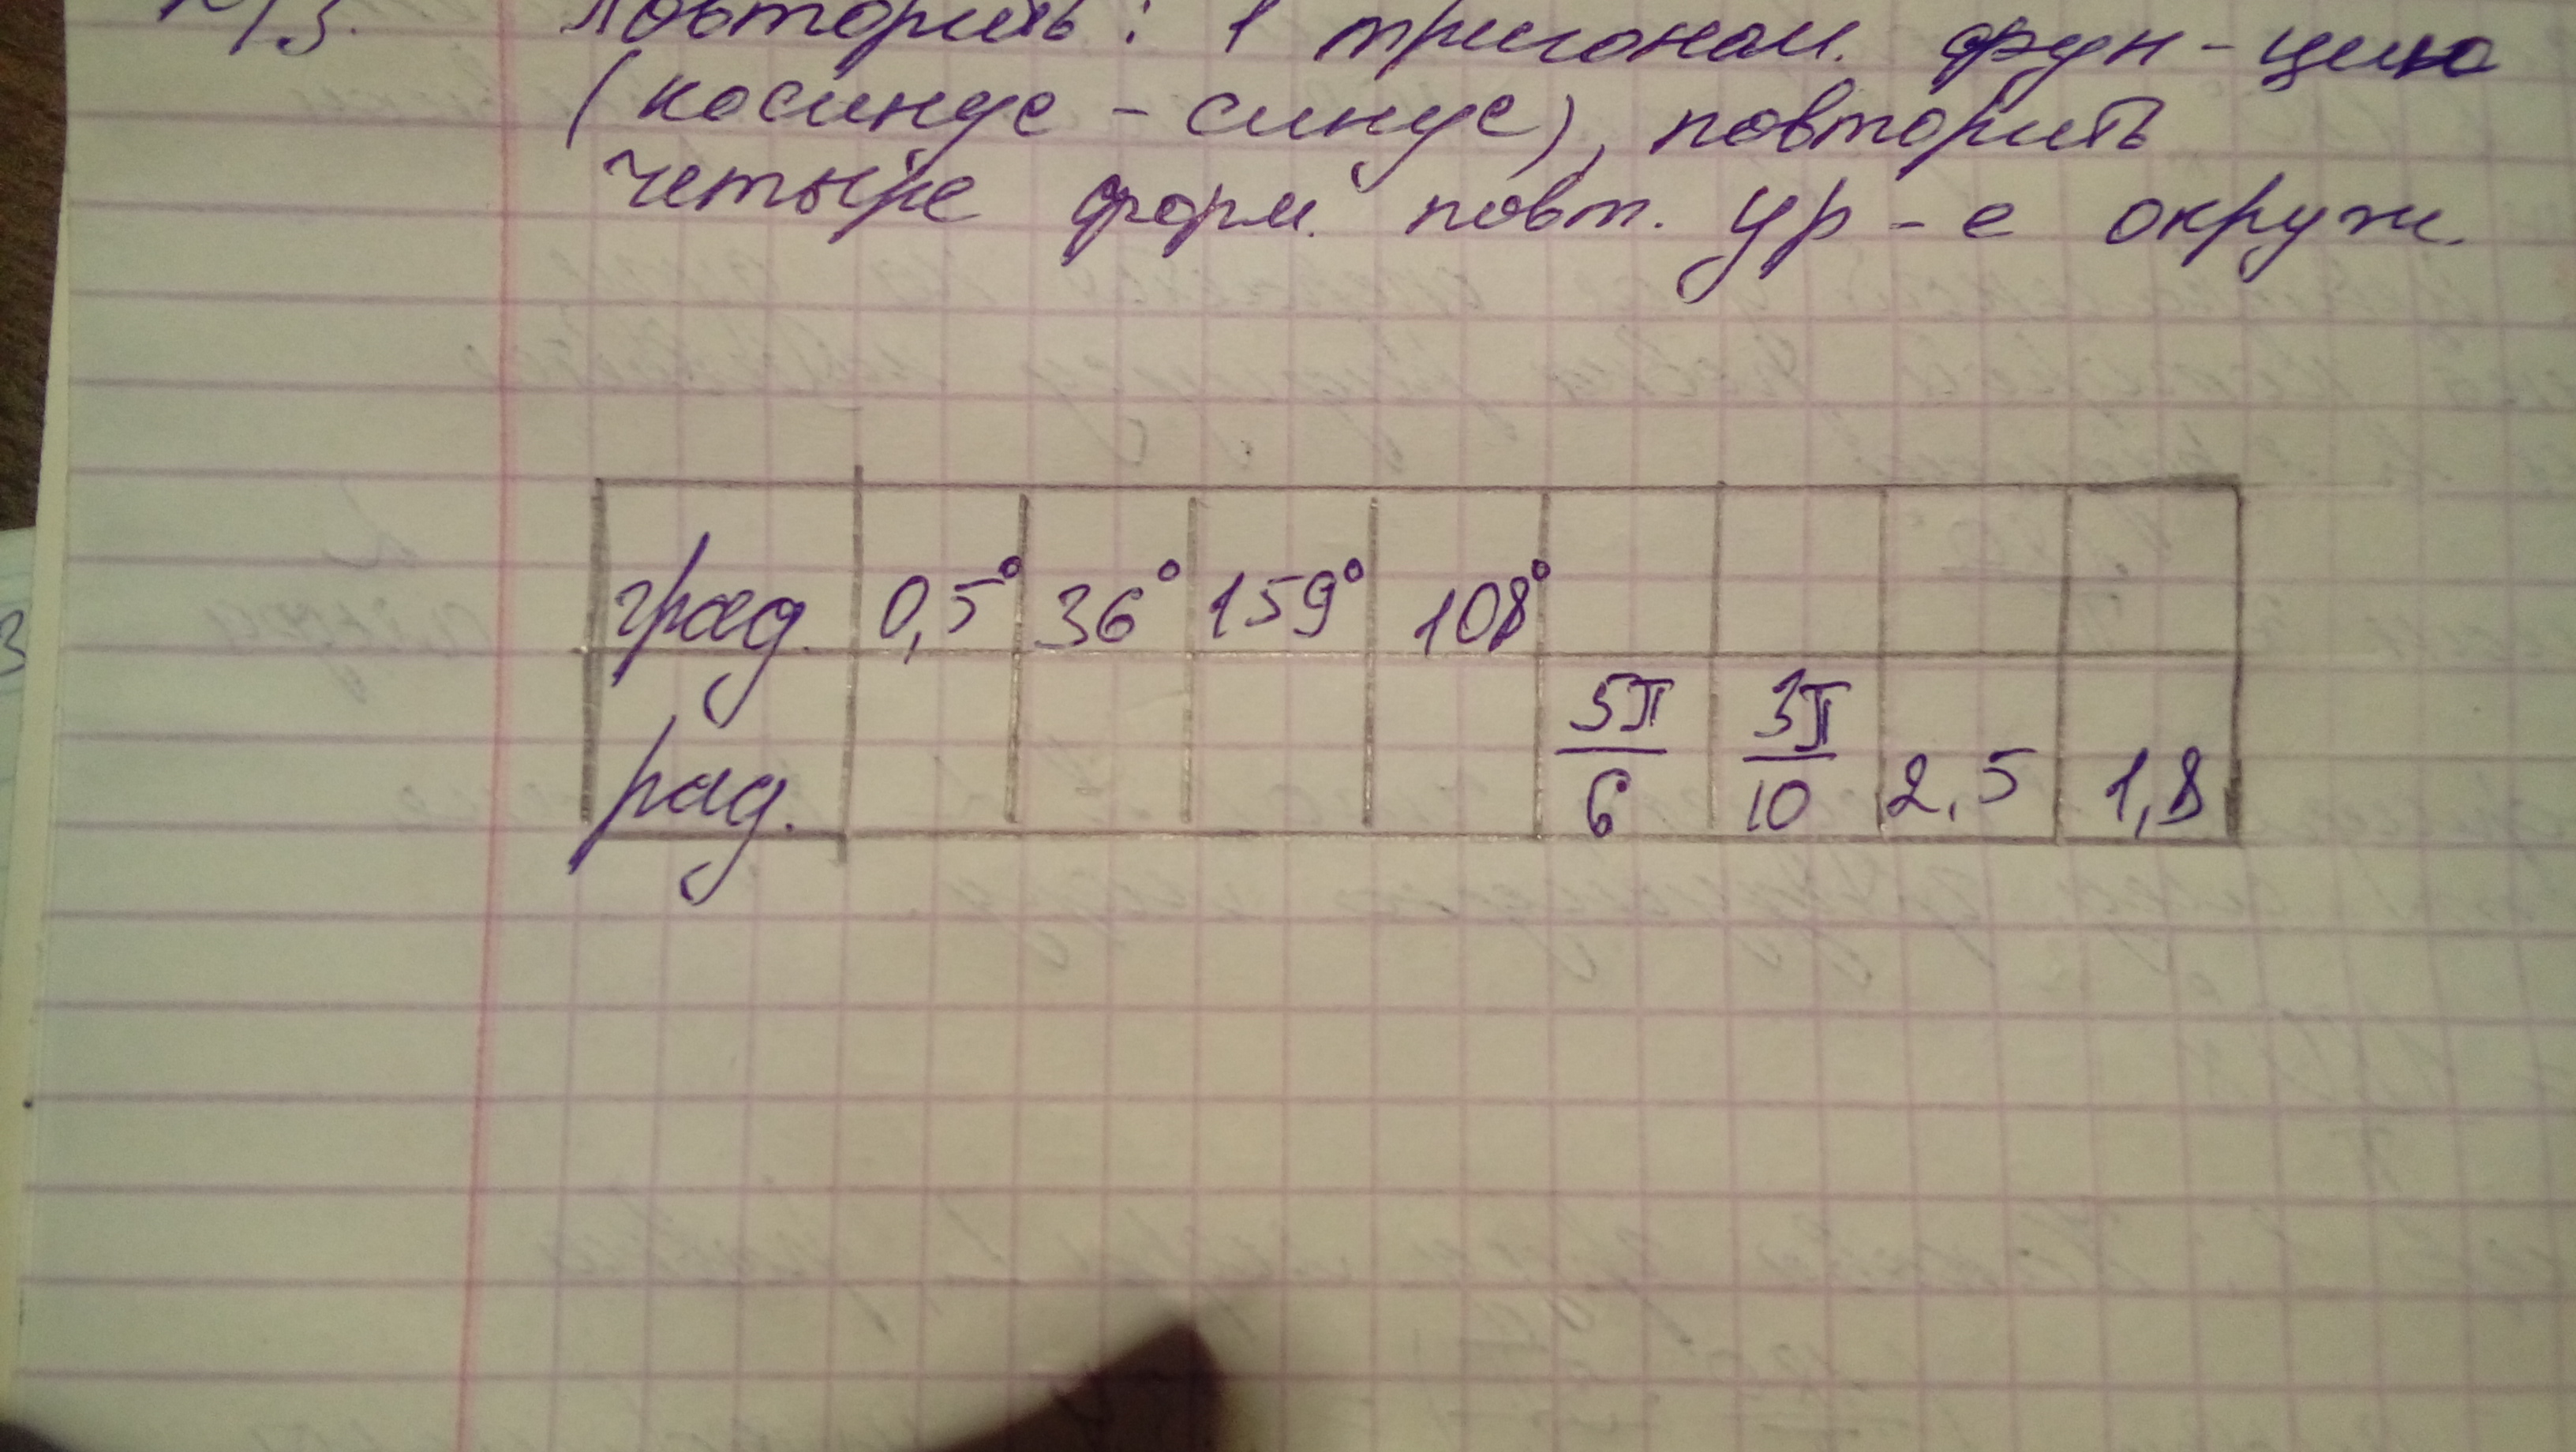 Повторить: 1 тригоном. фун-цию
(косинус - синус), повторить
четыре форм. повт. ур-е окруж.
град. 0,5° 36° 159° 108°
рад. 5π/6 3π/10 2,5 1,8